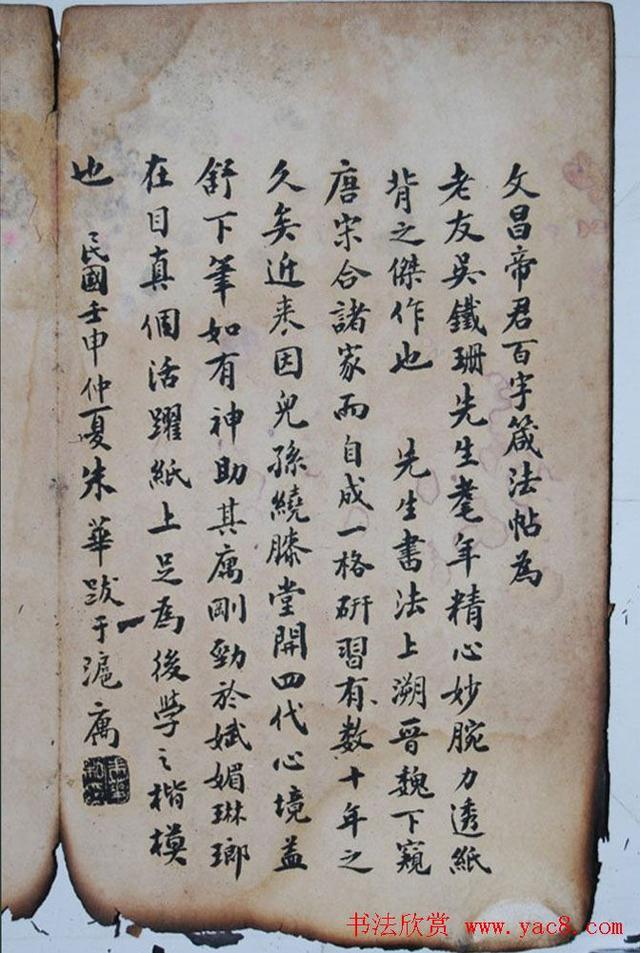 文昌帝君百字箴法帖為
老友吳鐵珊先生耄年精心妙腕力透紙
背之傑作也 先生書法上溯晉魏下窺
唐宋合諸家而自成一格研習有數十年之
久矣近来因兒孫繞膝堂開四代心境益
舒下筆如有神助其寓剛勁於斌媚琳瑯
在目真個活躍紙上足為後學之楷模
也 民國壬申仲夏朱華跋于滬寓
书法欣赏 www.yac8.com